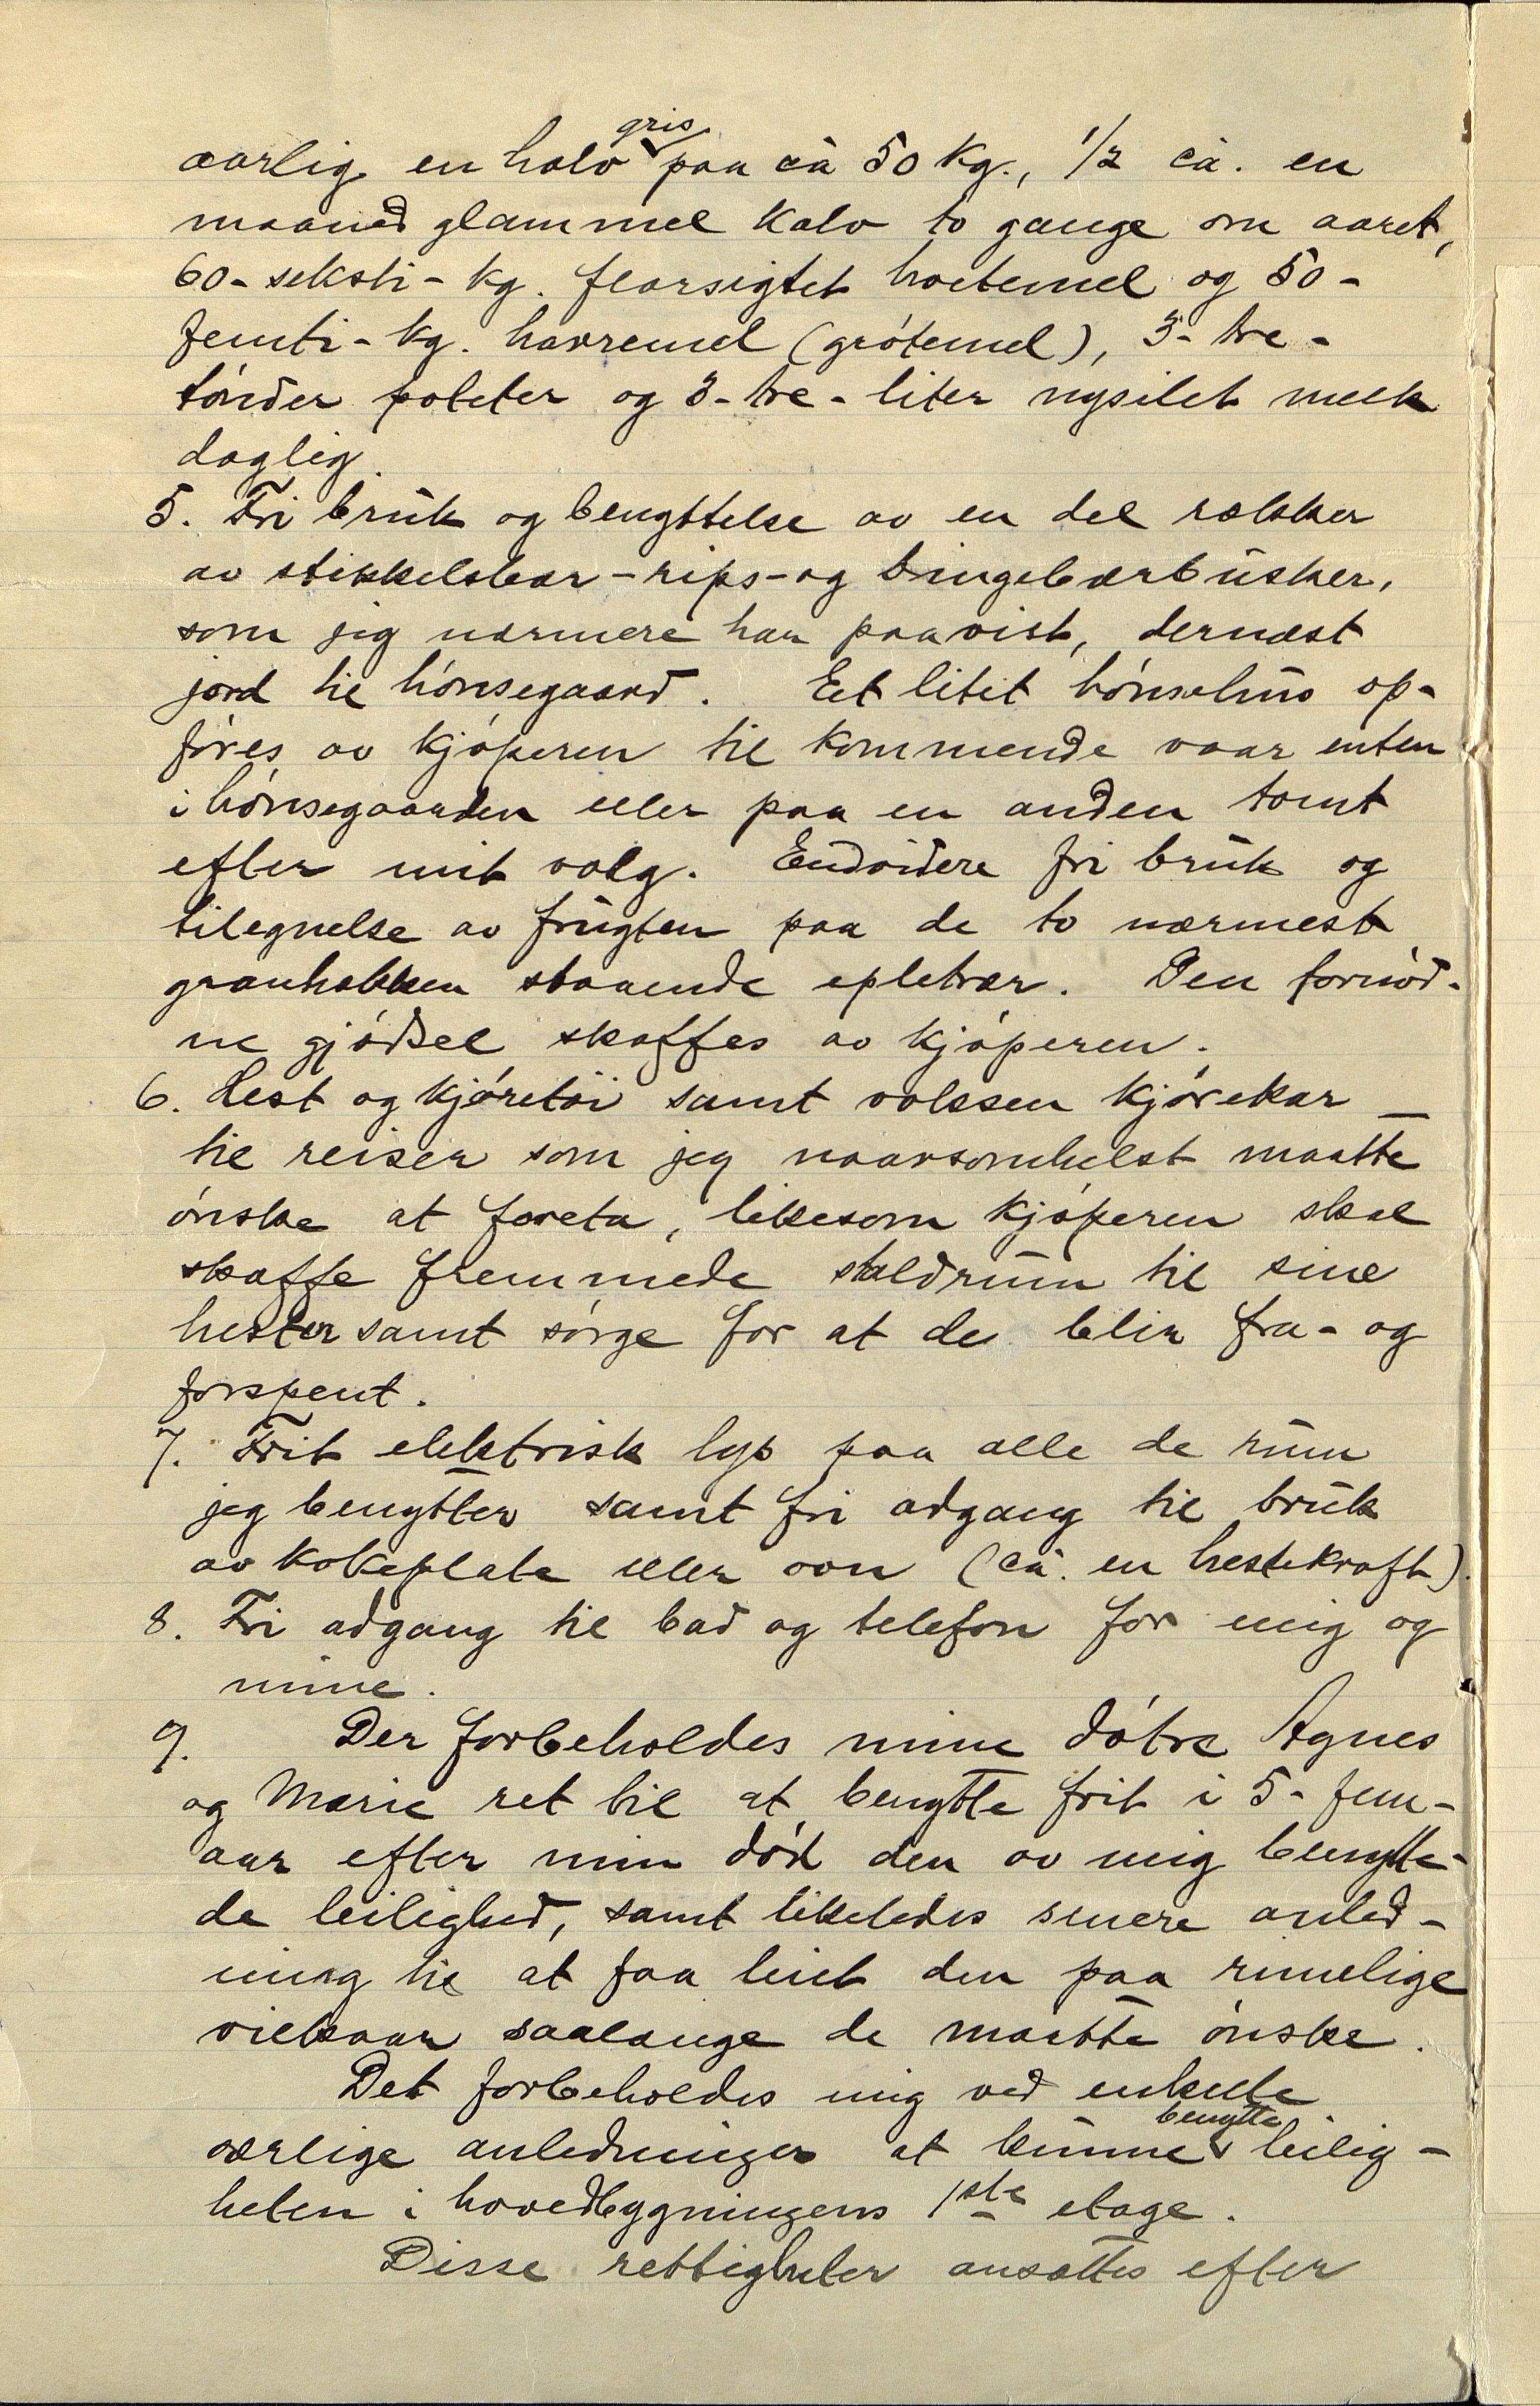 aarlig en halv gris paa ca 50 kg., 1/2 ca. en
maaned glammel kalv to gange om aaret,
60 - seksti - kg. florsigtet hvetemel og 50 -
femti - kg. havremel (grótemel), 3 - tre -
tónder poteter og 3 - tre - liter nysilet melk
daglig.
5. Fri bruk og benyttelse av en del rækker
av stikkelsbær - rips - og bringebærbusker,
som jeg nærmere har paavist, dernæst
jord til hónsegaard. Eet litet hónsehus op-
fóres av kjóperen til kommende vaar enten
i hónsegaarden eller paa en anden tomt
efter mit valg. Endvidere fri bruk og
tilegnelse av frugten paa de to nærmest
granhækken staaende epletrær. Den fornód-
ne gjódsel skaffes av kjóperen.
6. Hest og kjóretói samt voksen kjórekar
til reiser som jeg naarsomhelst maatte
ónske at foreta, likesom kjóperen skal
skaffe fremmede staldrum til sine
hester samt sórge for at de blir fra- og
forspent.
7. Frit elektrisk lys paa alle de rum
jeg benytter samt fri adgang til bruk
av kokeplate eller ovn (ca. en hestekraft).
8. Fri adgang til bad og telefon for mig og
mine.
9. Der forbeholdes mine dótre Agnes
og Marie ret til at benytte frit i 5 - fem -
aar efter min dód den av mig benytte-
de leilighed, samt likeledes senere anled-
ning til at faa leiet den paa rimelige
vilkaar saalange de maatte ónske.
Det forbeholdes mig ved enkelte
særlige anledninger at kunne benytte leilig-
heten i hovedbygningens 1ste etage.
Disse rettigheter ansættes efter